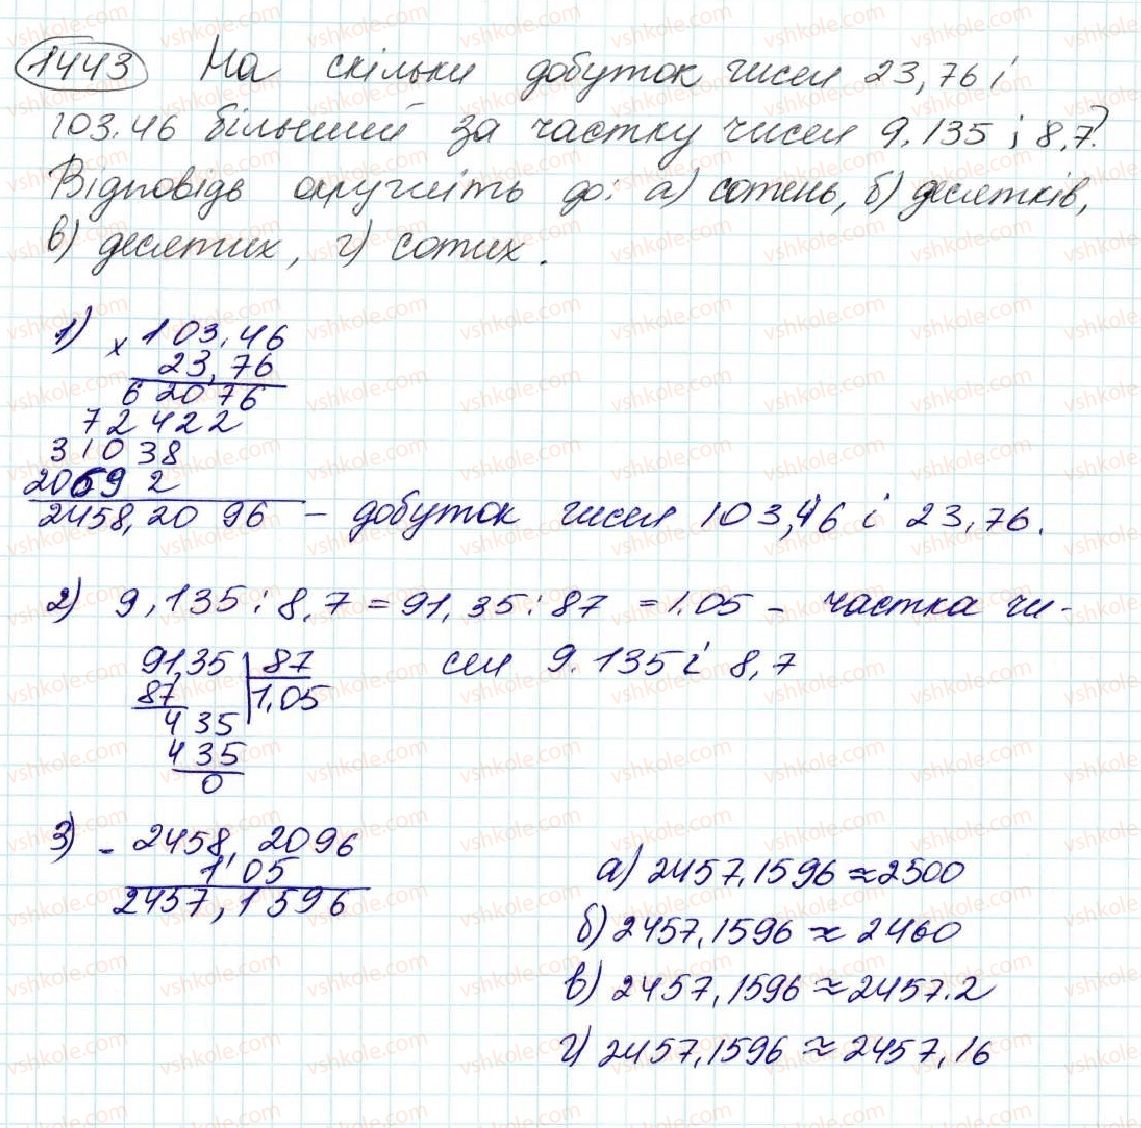 1443 На скільки добуток чисел 23,76 і
103.46 більший за частку чисел 9.135 і 8,7?
Відповідь округліть до: а) сотень, б) десятків,
в) десятих, г) сотих.
1) × 103,46
23,76
62076
72422
31038
20692
2458,2096 – добуток чисел 103,46 і 23,76.
2) 9,135 : 8,7 = 91,35 : 87 = 1.05 – частка чи-
сел 9.135 і 8,7
91,35 | 87
87 | 1,05
435
435
0
3) - 2458,2096
1,05
2457,1596
а) 2457,1596 ≈ 2500
б) 2457,1596 ≈ 2460
в) 2457,1596 ≈ 2457.2
г) 2457,1596 ≈ 2457,16
vshkole.com